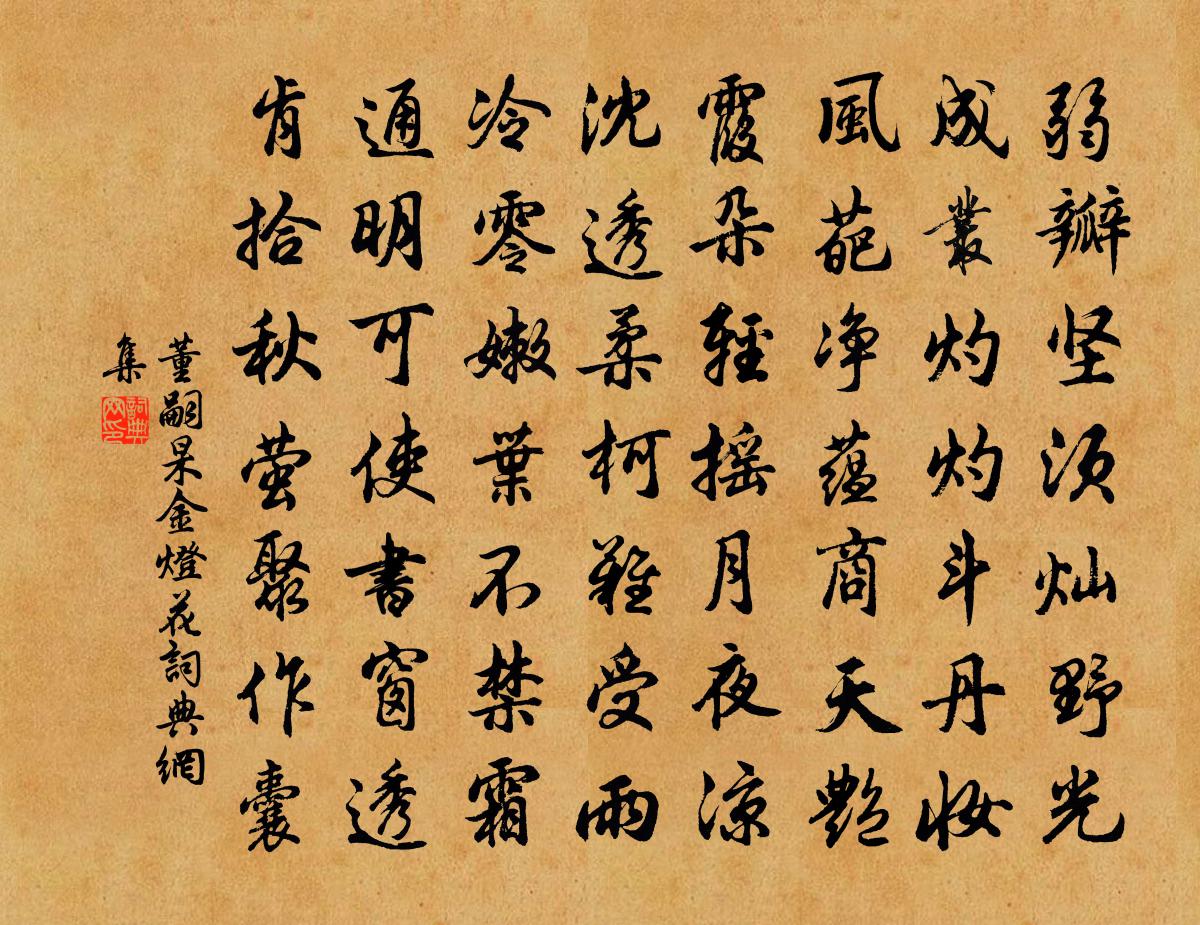 弱瓣坚须灿野光
成叢灼灼斗丹妆
風葩净蕴商天艶
霞朵輕摇月夜凉
沈透柔柯難受雨
冷零嫩葉不禁霜
通明可使書窗透
肯拾秋萤聚作囊
董嗣杲金燈花詞典網
集
詞典
网印